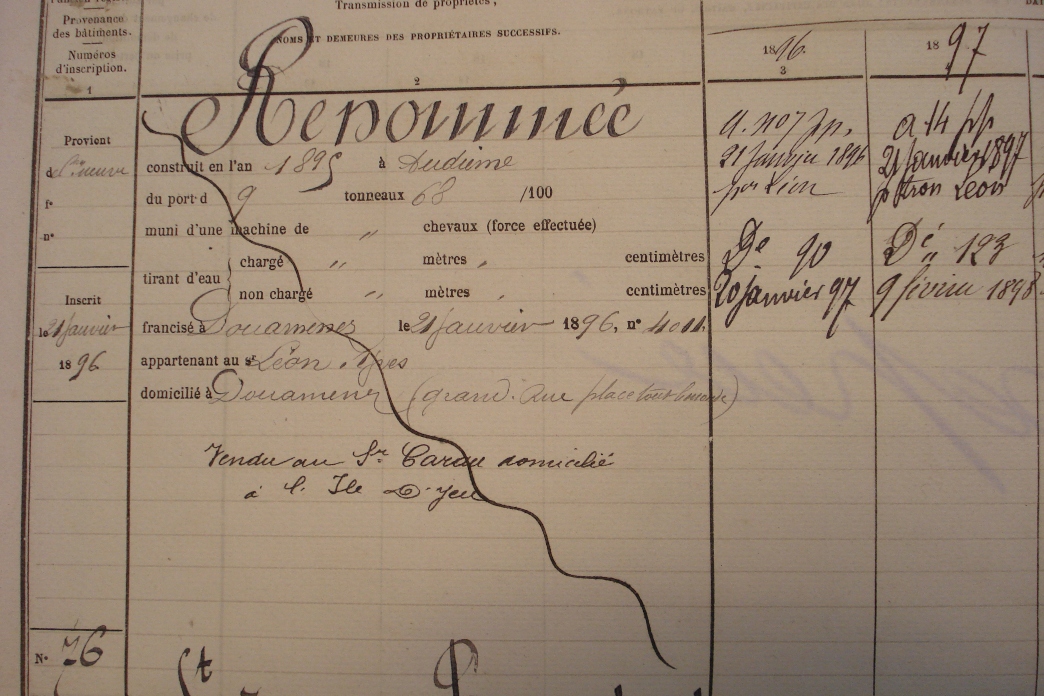 Transmission de propriétés,
Provenance
des bâtiments.
NOMS ET DEMEURES DES PROPRIÉTAIRES SUCCESSIFS.
Numéros
d'inscription.
1896
1897
1
2
3
Renommée
Provient
construit en l'an 1895 à Audierne
du port d 9 tonneaux 68 /100
fo
no
muni d'une machine de " chevaux (force effectuée)
tirant d'eau
chargé " mètres " centimètres
non chargé " mètres " centimètres
Inscrit
le 21 janvier
1896
francisé à Douarnenez le 21 janvier 1896, no
appartenant au sr Léon Yves
domicilié à Douarnenez (grand. Rue
Vendu au Sr domicilié
à l'Ile D'Yeu
21 janvier 1896
par Léon
De 90
20 janvier 97
a 14
21 janvier 1897
patron Léon
Dé 123
9 février 1898
No 76
St